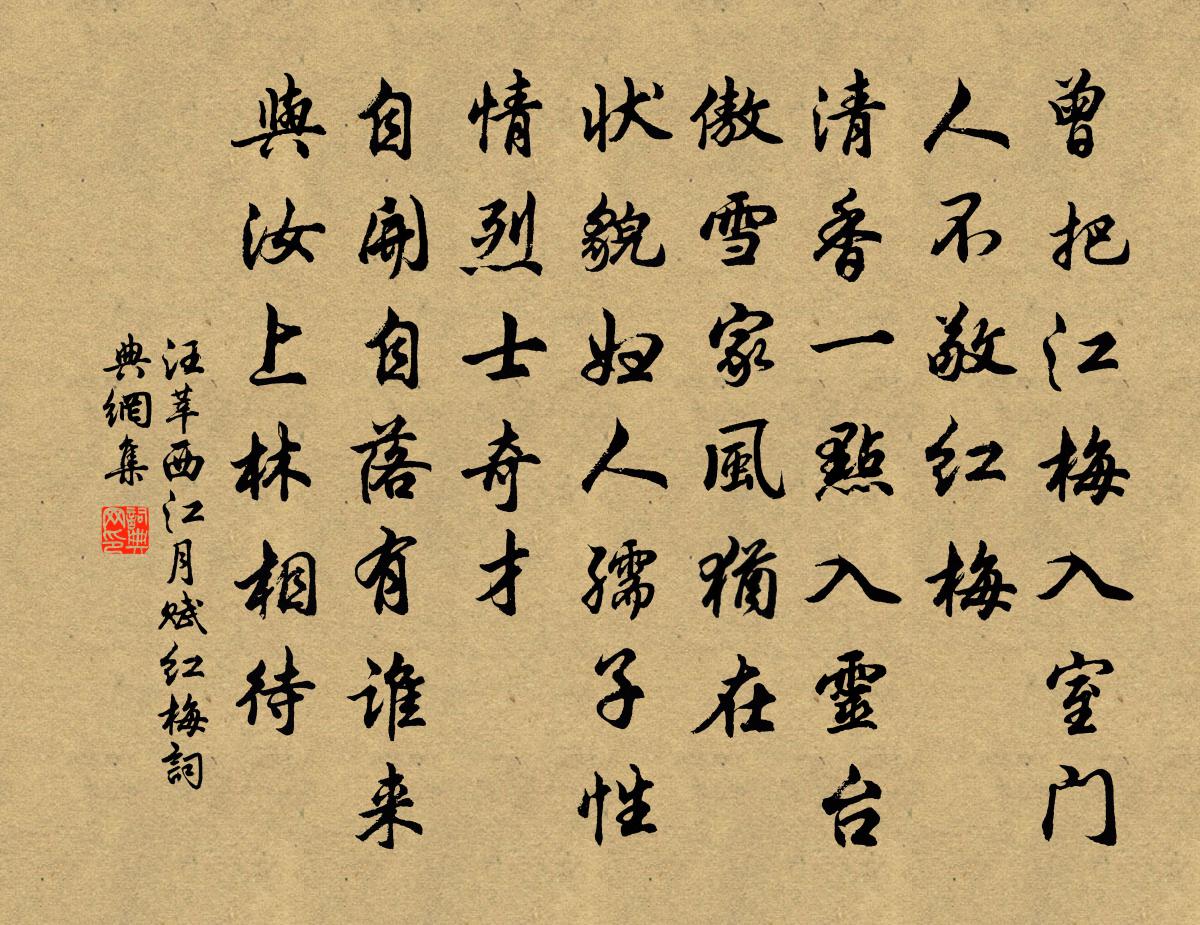 曾把江梅入室門
人不敬红梅
清香一點入靈台
傲雪家風猶在
状貌妇人孺子性
情烈士奇才
自開自落有谁来
與汝上林相待
汪莘西江月赋红梅詞
典網集
詞典网印